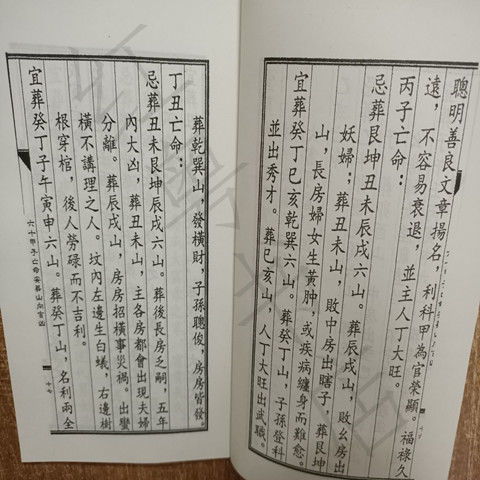 聰明善良文章揚名，利科甲為官榮顯。福祿久
遠，不容易衰退，並主人丁大旺。
丙子亡命：
忌葬艮坤丑未辰戌六山。葬辰戌山，敗么房出
妖婦；葬丑未山，敗中房出瞎子，葬艮坤
山，長房婦女生黃腫，或疾病纏身而難愈。
宜葬癸丁巳亥乾巽六山。葬癸丁山，子孫登科
並出秀才。葬巳亥山，人丁大旺出武職。
葬乾巽山，發橫財，子孫聰俊，房房皆發。
丁丑亡命：
忌葬丑未艮坤辰戌六山。葬後長房乏嗣，五年
內大凶，葬丑未艮坤山，主各房都會出現夫婦
分離。葬辰戌山，房房招橫事災禍。出蠻
橫不講理之人。墳內左邊生白蟻，右邊樹
根穿棺，後人勞碌而不吉利。
宜葬癸丁子午寅申六山。葬癸丁山，名利兩全
六十甲子亡命安葬山向宜忌
十七